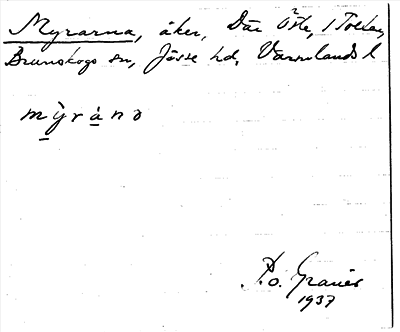 Myrarna, åker, Där Öste, i Tolken,
Brunskogs sn, Jösse hd, Värmlands l
mỳrànɔ
P.o. Graner
1937